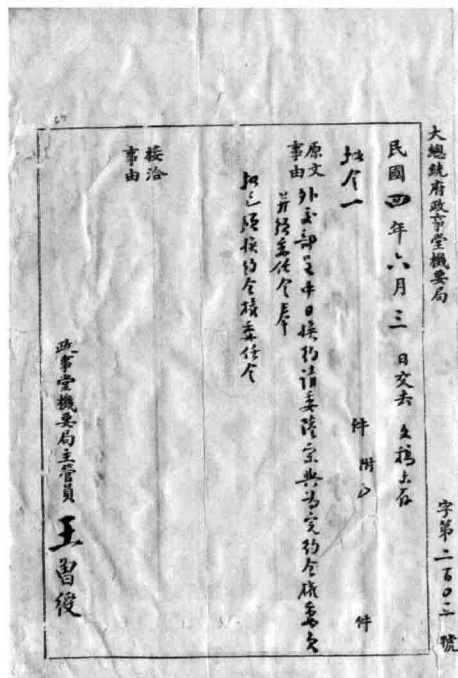 大總統府政事堂機要局
字第二百〇三號
民國四年六月三日交去文稿未存
批令一件附 件
原文事由
外交部呈中日換約請委陸宗輿為完約全權委員
並頒委任令
批已頒換約全權委任令
接洽事由
政事堂機要局主管員王曾綬